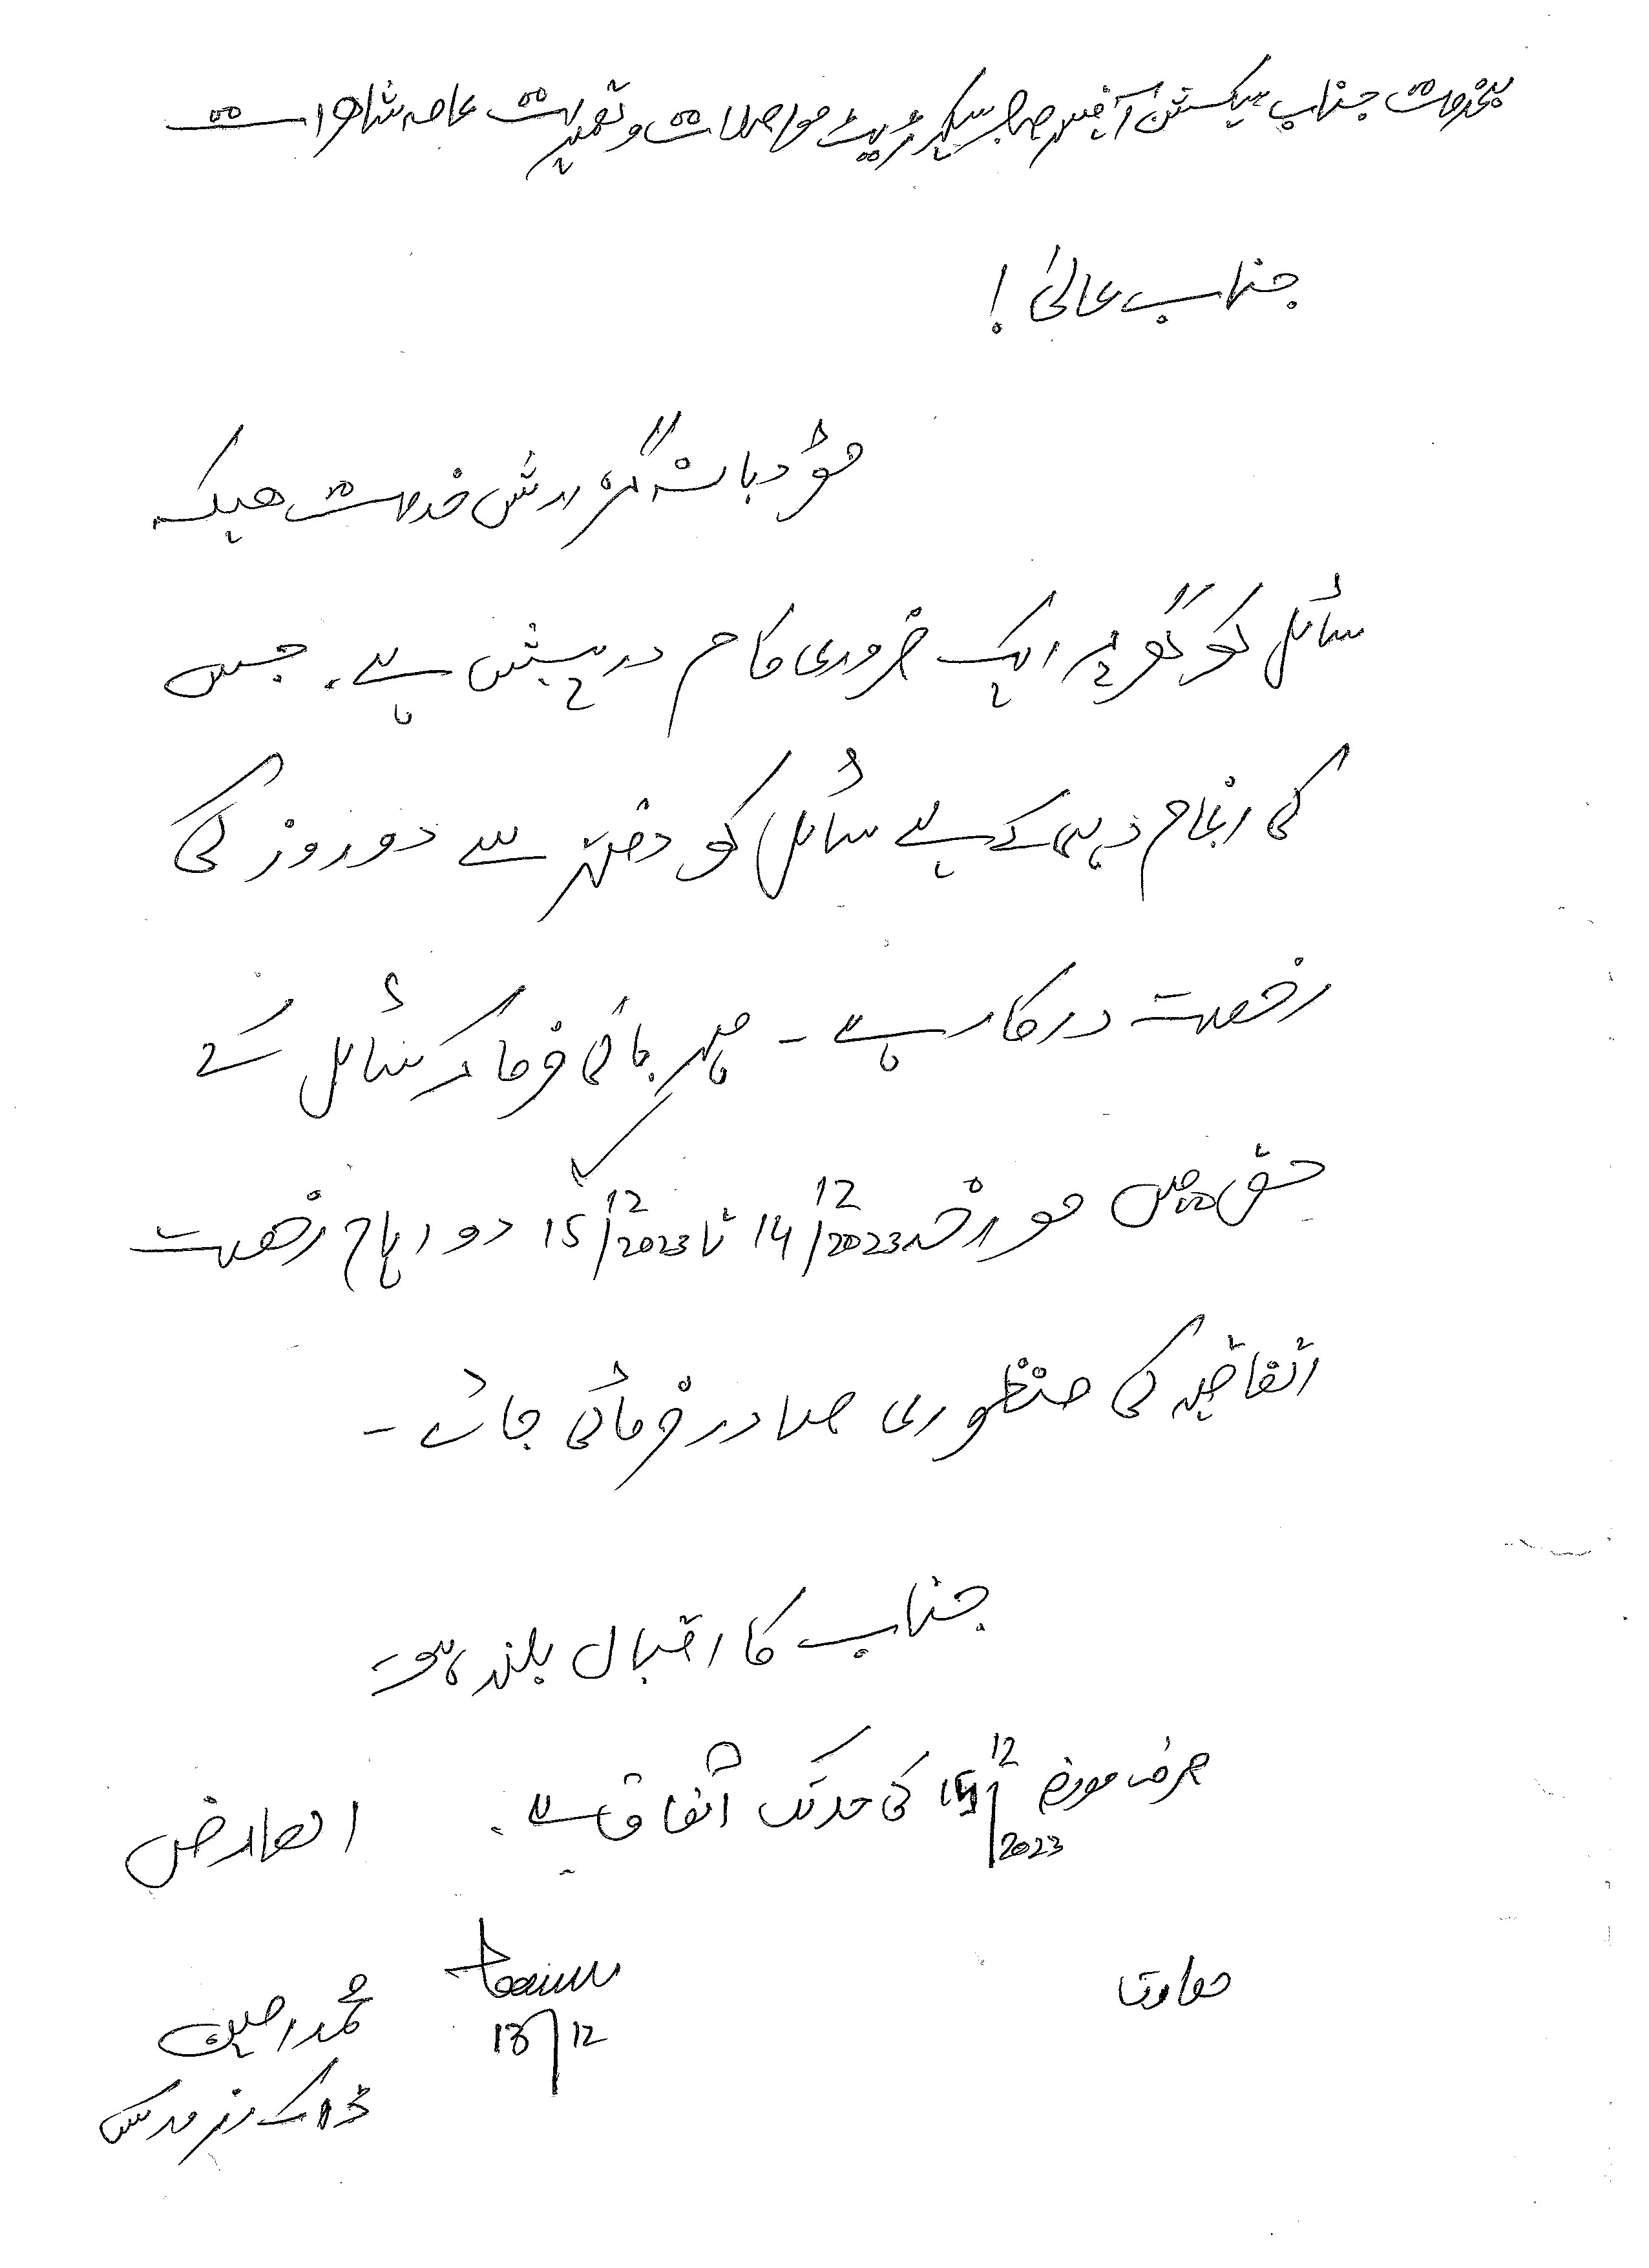 بخدمت جناب سیکشن آفیسر صاحب سیکرٹریٹ مواصلات و تعمیرات عامہ شاہرات
جناب عالیٰ!
مؤدبانہ گزارش خدمت ھیکہ
سائل کو گھر پر ایک ضروری کام درپیش ہے۔ جس
کی انجام دہی کے لیے سائل کو دفتر سے دو روز کی
رخصت درکار ہے۔ مہربانی فرما کر سائل کے
حق میں مورخہ 14/12/2023 تا 15/12/2023 دو ایام رخصت
اتفاقیہ کی منظوری صادر فرمائی جائے۔
جناب کا اقبال بلند ہو
صرف مورخہ 15/12/2023 کی حد تک اتفاق ہے۔
العارض
محمد امین
13/12
ڈاک رنر